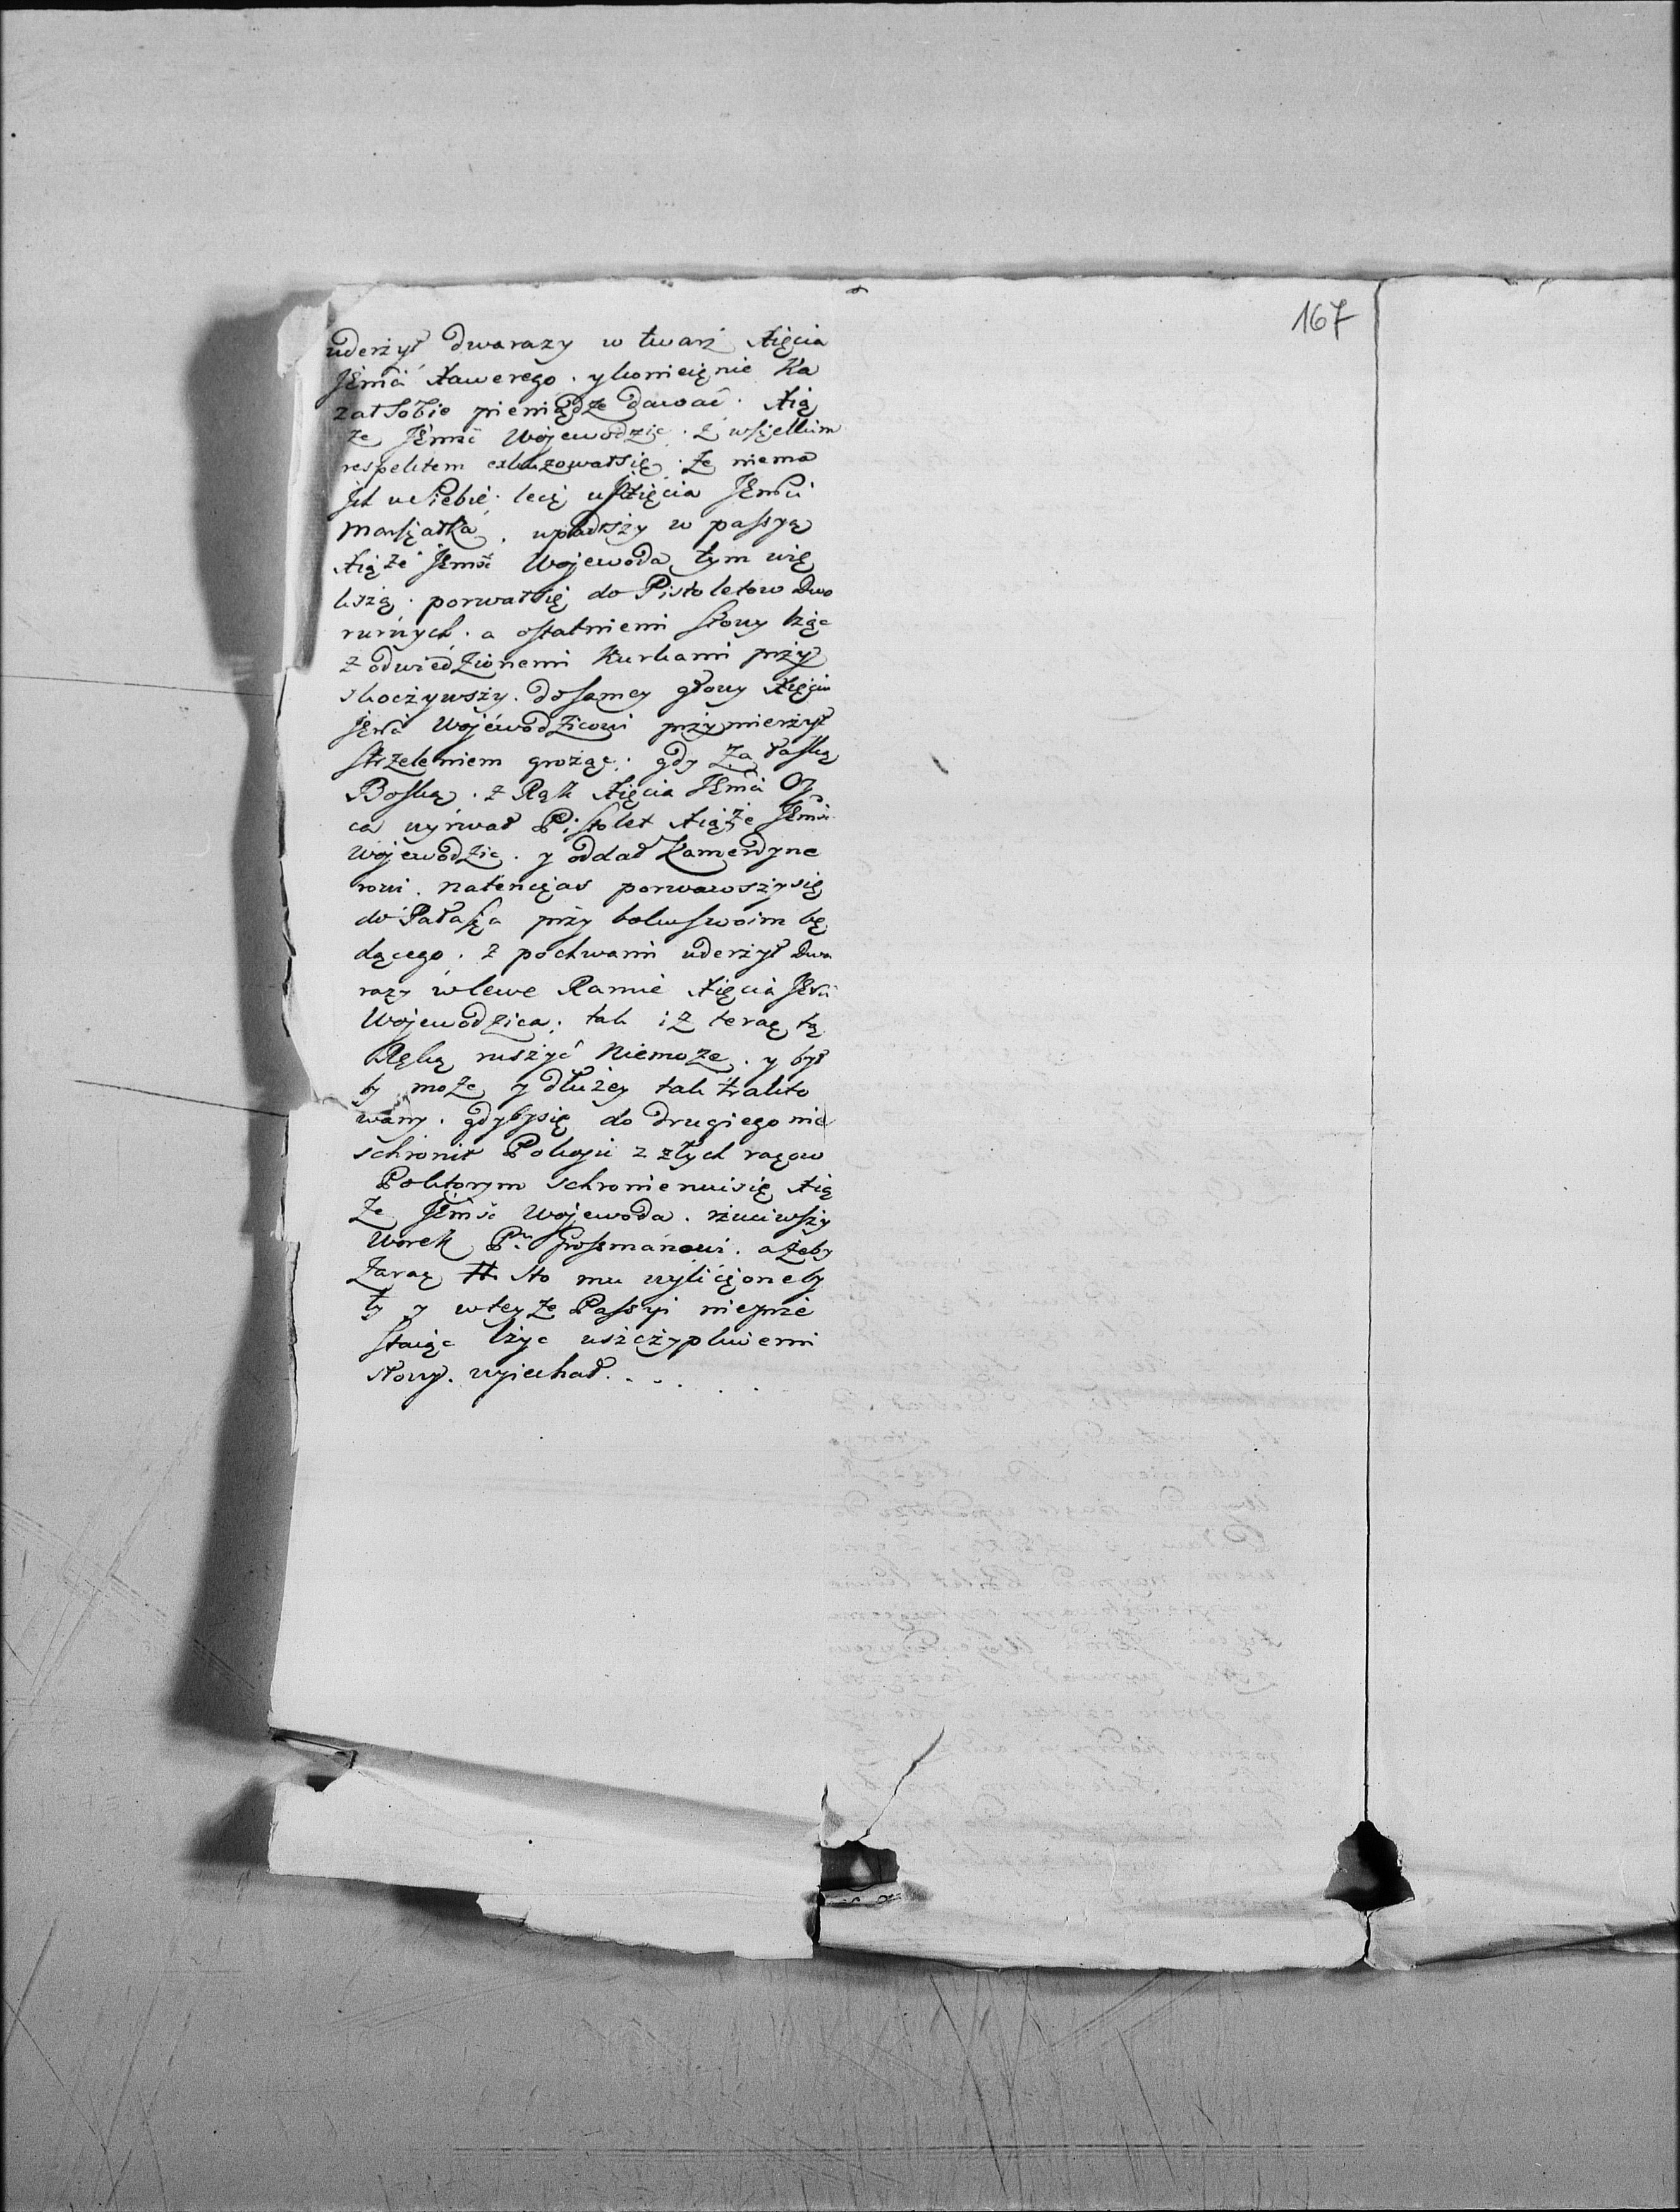 167
uderżył dwarazy w twarż Xięcia
JEmci Xawerego. y koniecżnie Ka
zał Sobie pieniądze dawać. Xią
że JEmść Wojewodzic. z wszelkim
respektem exkuzowałsię. że niema
Jch u Siebie. lecż u Xięcia JEmści
Marszałka. wpadszży w passyą
Xiąże JEmść Wojewoda tym wię
kszą. porwałsię do Pistoletow Dwo
rurnych. a ostatniemi słowy lżąc
z odwiedzionemi Kurkami przy
skocżywszy. do samey głowy Xięciu
JEmci Wojewodzicowi przymierżył
strzeleniem grożąc. gdy za łaską
Boską. z Rąk Xięcia JEmci Oy
ca wyrwał Pistolet Xiąże JEmść
Wojewodzic. y oddał Kamerdyne
rowi. natencżas porwawszysię
do Pałasża przy boku swoim bę
dącego. z pochwami uderżył dwa
razy w lewe Ramie Xięcia JEmci
Wojewodzica. tak iż teraz tą
Ręką ruszyć Niemoże. y był
by może y dłużey tak trakto
wany. gdybysię do drugiego nie
schronił Pokoju z złych razow
Poktorym schronieniusię Xią
że JEmść Wojewoda. rżuciwszy
Worek P. Grossmanowi. ażeby
zaraz # sto mu wylicżone by
ły y wteyże Passyi nieprze
staiąc lżyc uszcżypliwemi
słowy. wyiechał. . . . . .